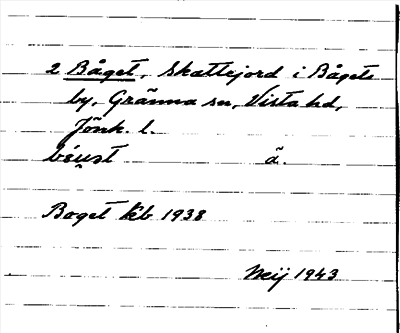 2 Båget, Skattejord i Bågets
by, Gränna sn, Vista hd,
Jönk. l.
ä.
Baget kb 1938
Meij 1943